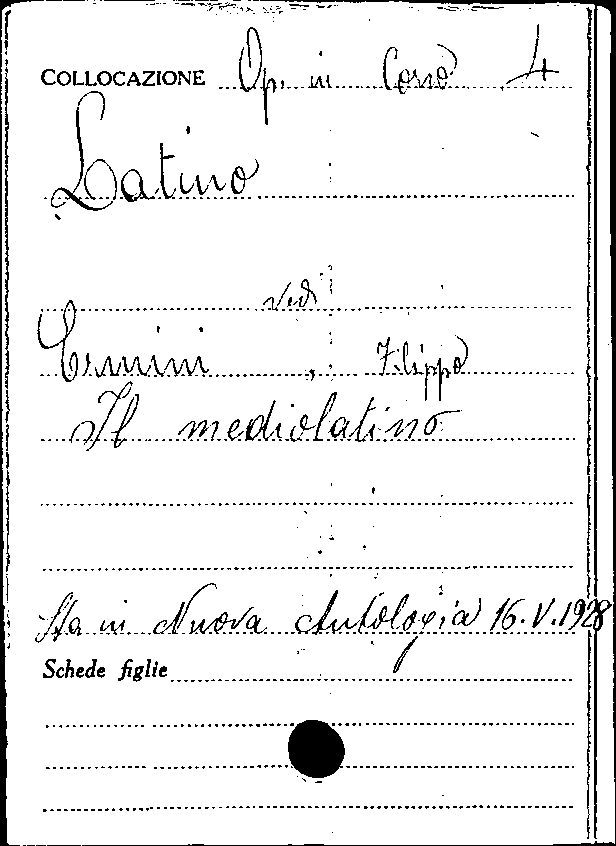 COLLOCAZIONE Op. in Corso 4
Latino
Vedi
Ermini, Filippo
Il mediolatino
Sta in Nuova Antologia 16.V.1928
Schede figlie